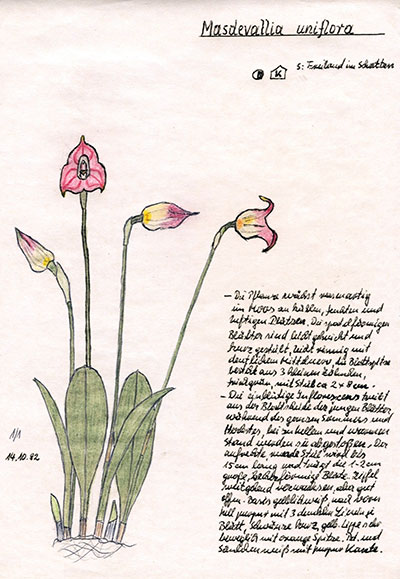 Masdevallia uniflora
K S: Freiland im Schatten
– Die Pflanze wächst rasenartig
im Moos an kühlen, feuchten und
luftigen Plätzen. Die spatelförmigen
Blätter sind leicht geknickt und
kurz gestielt, leicht rinnig mit
deutlichem Mittelnerv, die Blattspitze
besteht aus 3 kleinen Zähnchen,
mit Stiel ca 2 x 8 cm.
– Die einblütige Infloreszens treibt
aus der Blattscheide der jungen Blätter
während des ganzen Sommers und
Herbstes, bei zu hellem und warmem
Stand werden sie abgestoßen. Der
aufrechte runde Stiel wird bis
15 cm lang und trägt die 1-2 cm
große, Blüte. Zipfel
weitgehend verwachsen, aber gut
offen. gelblichweiß, nach vorn
hell purpur mit 3 dunklen Linien je
Blatt, schwänze kurz, gelb. Lippe sehr
beweglich mit orange Spitze. Pet. und
Säulchen weiß mit purpur Kante.
14.10.82